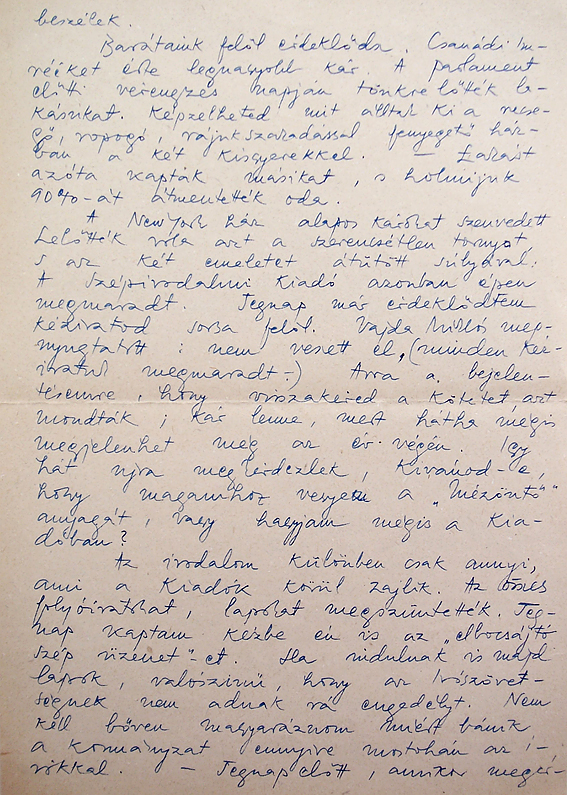 beszélek.
Barátaink felől érdeklődsz. Csanádi Im-
rééket érte legnagyobb kár. A parlament
előtti vérengzés napján tönkrelőtték la-
kásukat. Képzelheted mit álltak ki a recse-
gő, ropogó, rájukszakadással fenyegető ház-
ban a két kisgyerekkel. — Lakást
azóta kaptak másikat, s holmijuk
90%-át átmentették oda.
A New York ház alapos károkat szenvedett
Lelőtték róla azt a szerencsétlen tornyot,
s az két emeletet átütött súlyával.
A Szépirodalmi Kiadó azonban épen
megmaradt. Tegnap már érdeklődtem
kéziratod sorsa felől. Vajda Mikló meg-
nyugtatott: nem veszett el, (minden kéz-
iratuk megmaradt.) Arra a bejelen-
tésemre, hogy visszakéred a kötetet, azt
mondták; kár lenne, mert hátha mégis
megjelenhet még az év végén. Így
hát újra megkérdezlek, kívánod-e,
hogy magamhoz vegyem a "Mézöntő"
anyagát, vagy hagyjam mégis a Kia-
dóban?
Az irodalom különben csak annyi,
ami a Kiadók körül zajlik. Az összes
folyóiratokat, lapokat megszüntették. Teg-
nap kaptam kézbe én is az "elbocsájtó
szép üzenet"-et. Ha indulnak is majd
lapok, valószínű, hogy az Írószövet-
ségnek nem adnak rá engedélyt. Nem
kell bőven magyaráznom miért bánik
a kormányzat ennyire mostohán az í-
rókkal. — Tegnapelőtt, amikor megér-